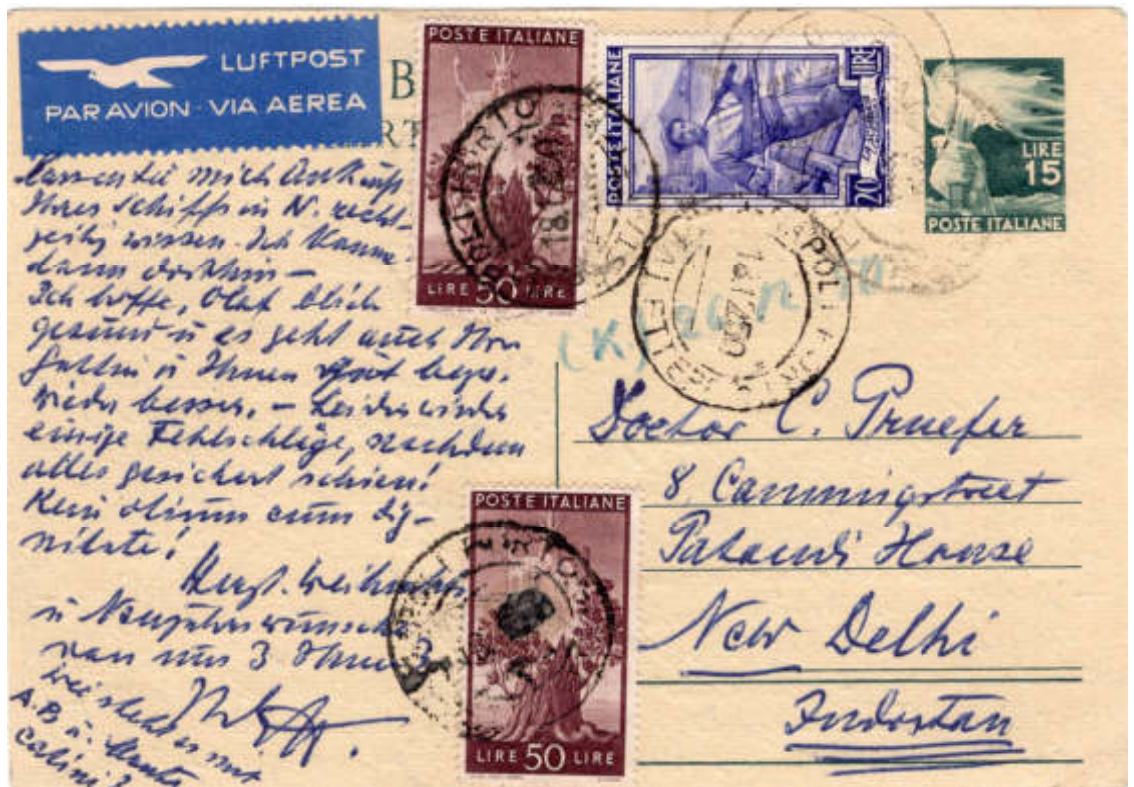 LUFTPOST
PAR AVION - VIA AEREA
POSTE ITALIANE
LIRE 50 LIRE
POSTE ITALIANE
20 LIRE
LIRE
15
POSTE ITALIANE
18.12.50
NAPOLI
(K) 26 12 50
lassen Sie mich Ankunft
Ihres Schiffs in N. recht-
zeitig wissen. Ich komme
dann dorthin -
Ich hoffe, Olaf blieb
gesund u es geht auch Ihrer
Gattin u Ihnen gut bezw.
wieder besser. - Leider wieder
einige Fehlschläge, nachdem
alles gesichert schien!
Kein otium cum dig-
nitate!
Herzl. Weihnachts
u Neujahrswünsche
von uns 3 Ihnen 3
wie steht es mit
A.B u.
Doctor C. Pruefer
8, Canningstreet
Pataudi House
New Delhi
Indostan
POSTE ITALIANE
LIRE 50 LIRE